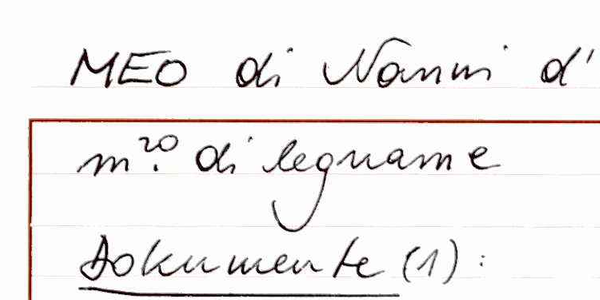 MEO di Nanni d'
m.ro di legname
Dokumente (1):